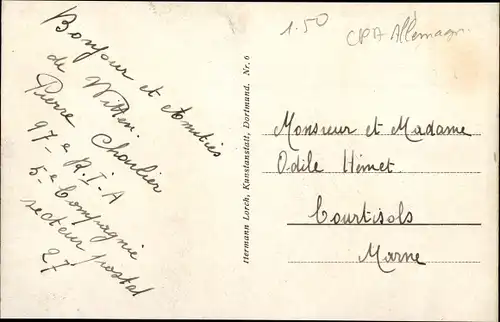 1.50
CPA Allemagn.
Bonjour et Amitiés
de Witten.
Pierre Choulier
97e R.I.A
5e Compagnie
secteur postal
27
Hermann Lorch, Kunstanstalt, Dortmund. Nr. 6
Monsieur et Madame
Odile Hémet.
Courtisols
Marne